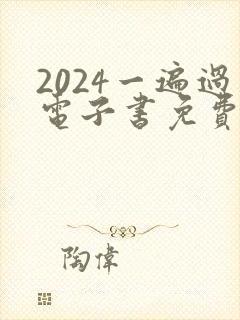 2024一遍過
電子書免費
陶偉